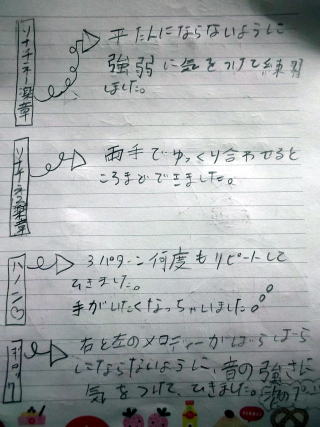 ソナチネ一楽章
平たんにならないように
強弱に気をつけて練習
しました。
ソナチネ三楽章
両手でゆっくり合わせると
ころまでできました。
ハノン♡
3パターン何度もリピートして
ひきました。
手がいたくなっちゃいました。。。
バロック
右と左のメロディーがばらばら
にならないように、音の強さに
気をつけて、ひきました。